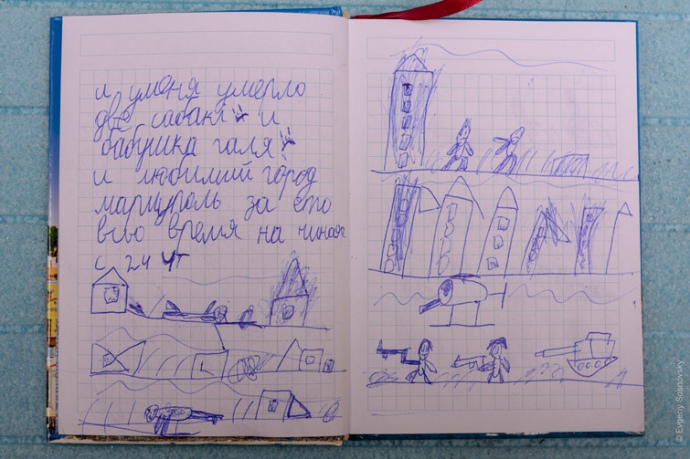 и уменя умерло
две сабаки и
бабушка галя
и любимий город
мариуполь за это
всио время на чиная
с 24 чт
© Evgeny Sosnovsky